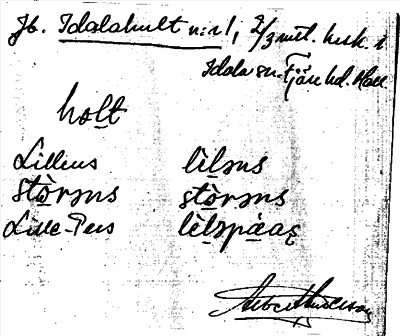 Jb. Idalahult n:r 1, 2/3 mtl. krk. i
Idala sn. Fjäre hd. Hall.
holt
Lillens lìlɘns
stòrɘns stòrɘns
Lille-Pers lìlɘpàaʂ